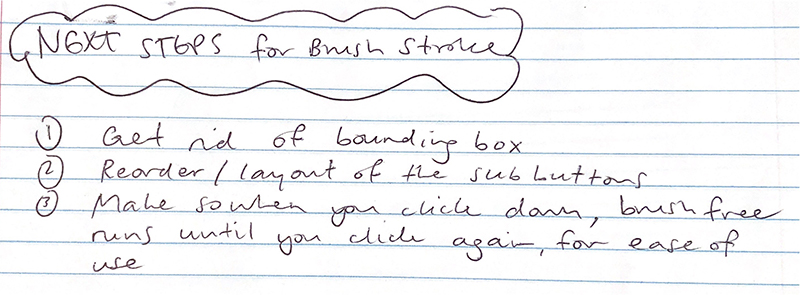 NEXT STEPS for Brush Stroke
① Get rid of bounding box
② Reorder / layout of the sub buttons
③ Make so when you click down, brush free
runs until you click again, for ease of
use